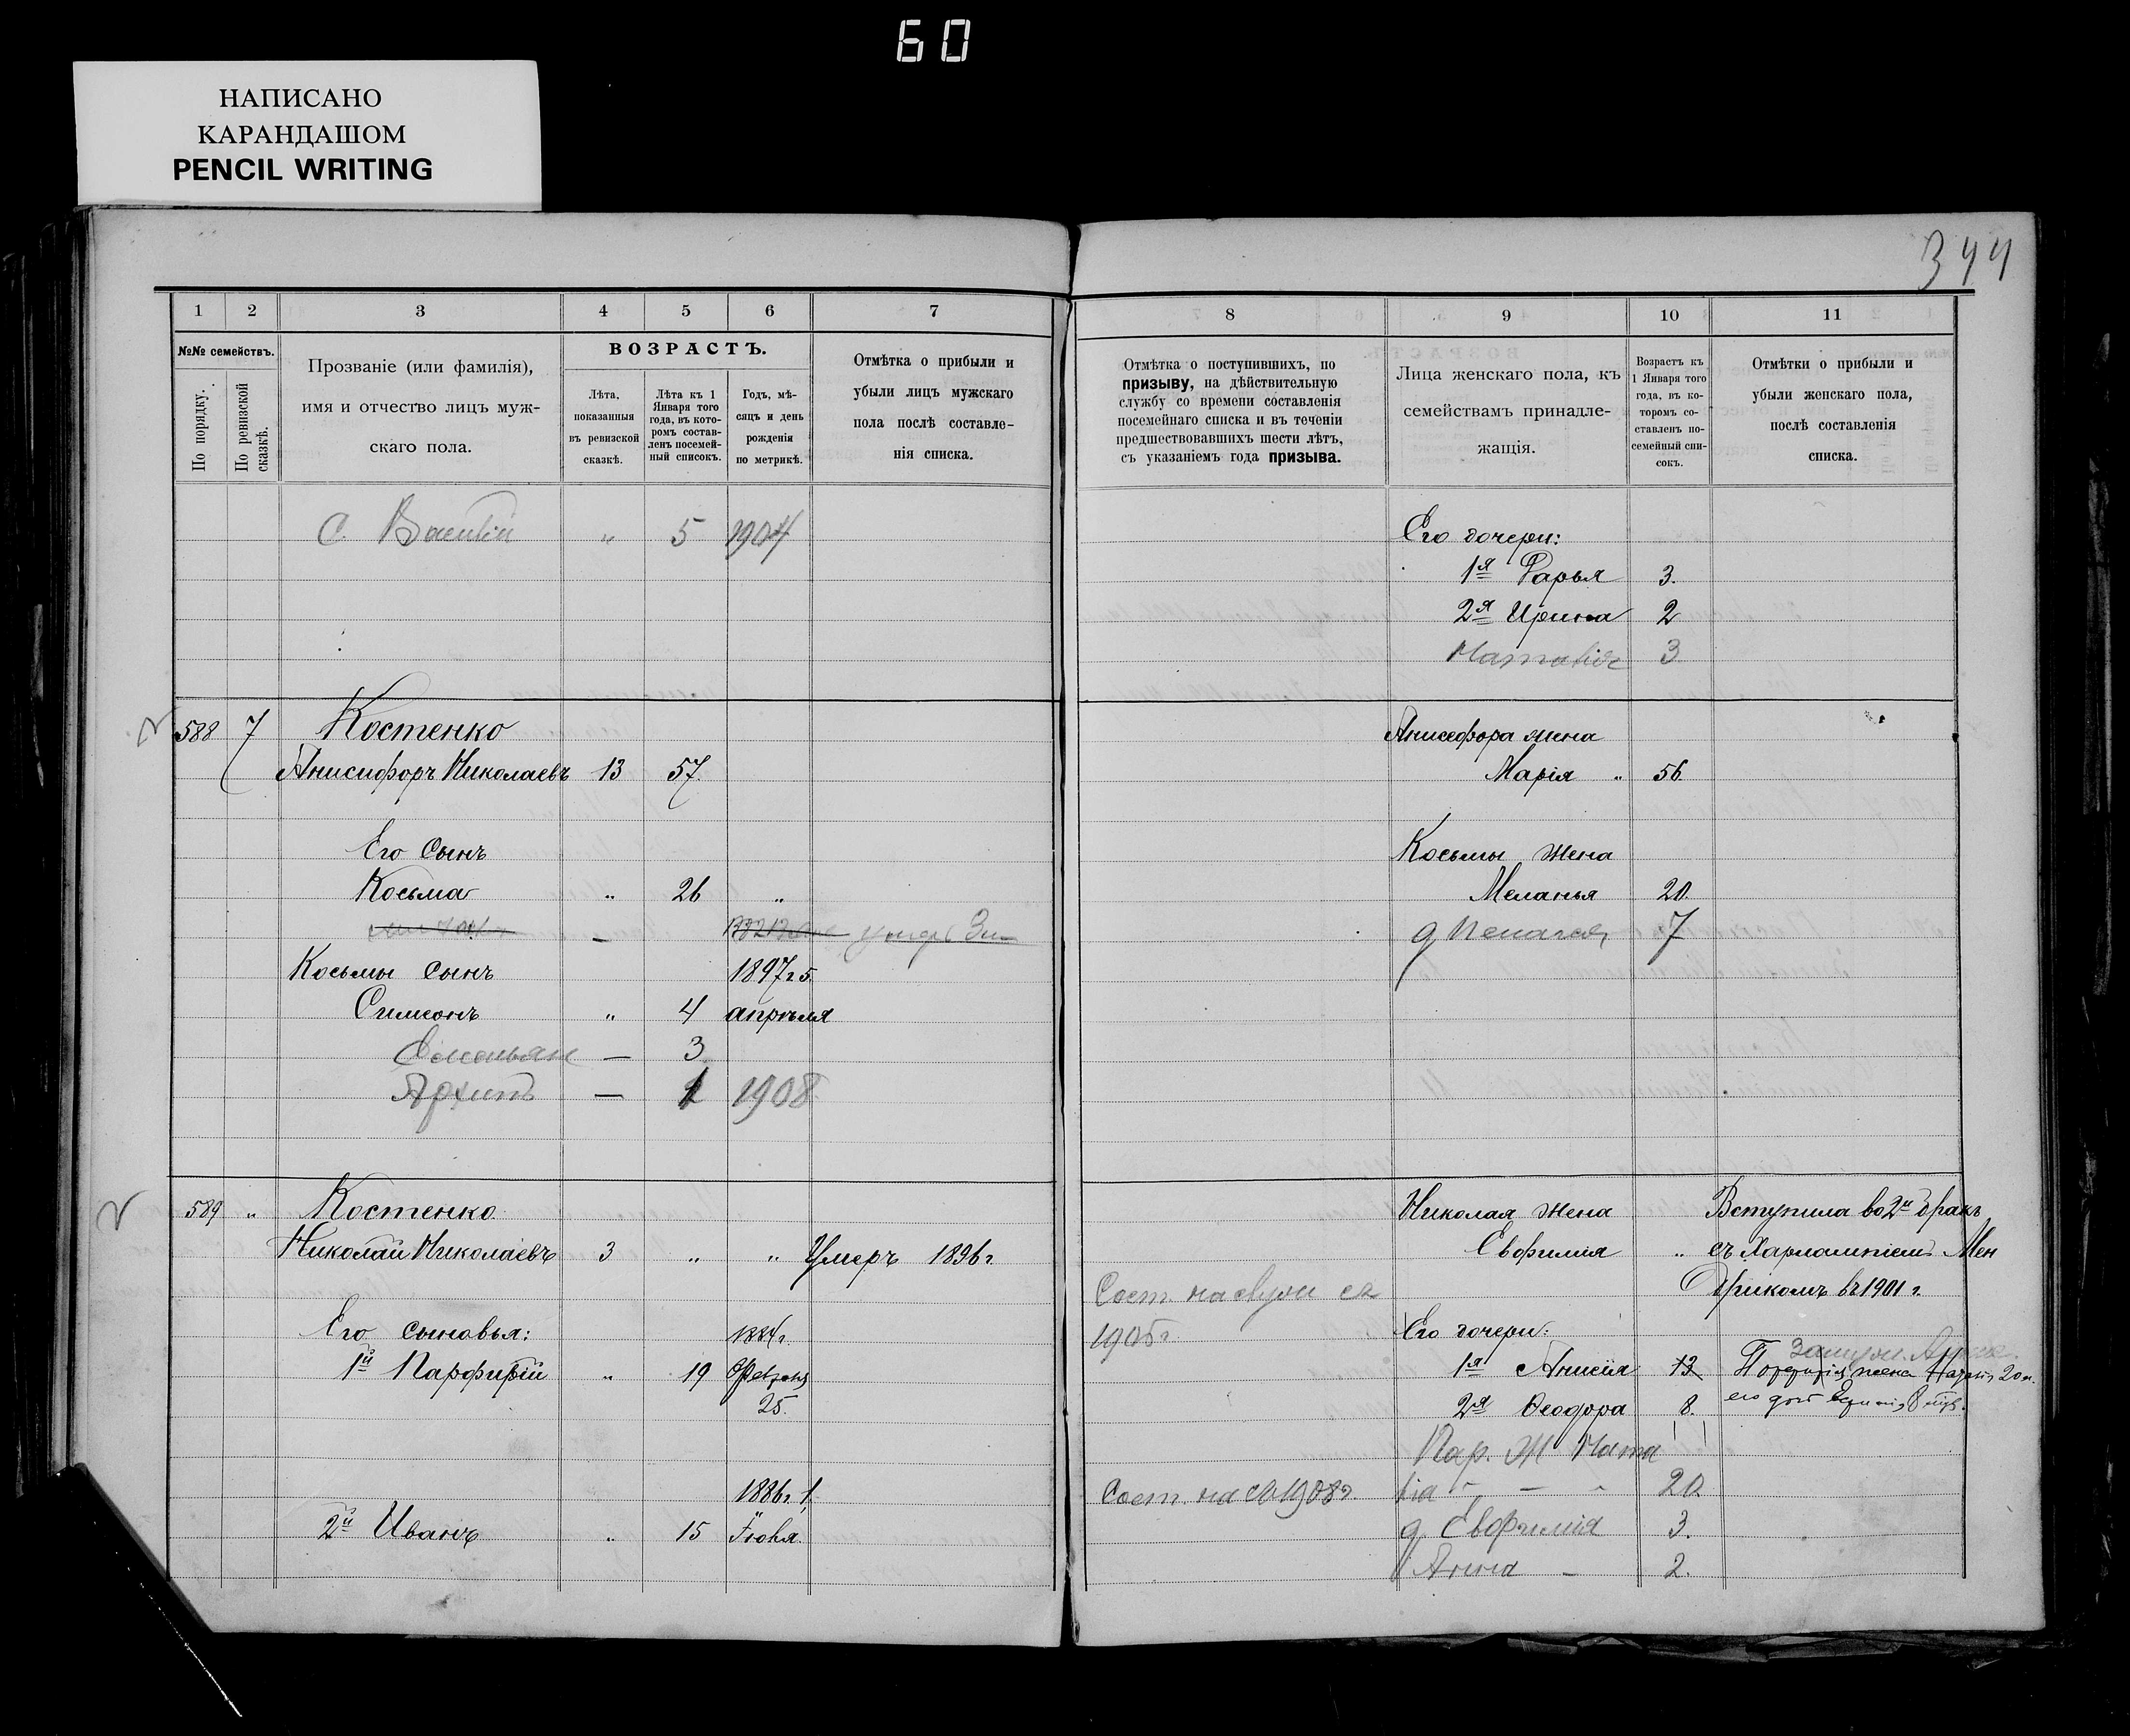 60
НАПИСАНО
КАРАНДАШОМ
PENCIL WRITING
344
1 2 3 4 5 6 7
№№ семействъ.
По порядку.
По ревизской сказкѣ.
Прозваніе (или фамилія),
имя и отчество лицъ муж-
скаго пола.
ВОЗРАСТЪ.
Лѣта,
показанныя
въ ревизской
сказкѣ.
Лѣта къ 1
Января того
года, въ кото-
ромъ состав-
ленъ посемей-
ный списокъ.
Годъ, мѣ-
сяцъ и день
рожденія
по метрикѣ.
Отмѣтка о прибыли и
убыли лицъ мужскаго
пола послѣ составле-
нія списка.
С. Василій „ 5 1904
588 7 Костенко
Анисифоръ Николаевъ 13 57.
Его Сынъ
Косьма „ 26 „
умеръ
Косьмы Сынъ 1897 г 5.
Симеонъ „ 4 апрѣля
— 3
Архипъ — 1 1908
589 „ Костенко
Николай Николаевъ 3 „ „ Умеръ 1896 г.
Его сыновья: 1884 г.
1й Парфирій „ 19 Февраля
25.
1886 г. 1
2й Иванъ „ 15 Іюня.
8 9 10 11
Отмѣтка о поступившихъ, по
призыву, на дѣйствительную
службу со времени составленія
посемейнаго списка и въ теченіи
предшествовавшихъ шести лѣтъ,
съ указаніемъ года призыва.
Лица женскаго пола, къ
семействамъ принадле-
жащія.
Возрастъ къ
1 Января того
года, въ ко-
торомъ со-
ставленъ по-
семейный спи-
сокъ.
Отмѣтки о прибыли и
убыли женскаго пола,
послѣ составленія
списка.
Его дочери:
1я Дарья 3.
2я Ирина 2
Наталія 3
Анисефора жена
Марія „ 56.
Косьмы жена
Меланья 20.
д Пелагея 7
Николая жена Вступила во 2й бракъ
Евфимія „ съ Харлампіемъ Мен
дрикомъ въ 1901 г.
Сост. на служ съ
1905 г
Его дочери:
1я Анисія 13
2я Ѳеодора 8.
Порфирія жена 20 л.
Пар. Ж Ната
Сост. на сл 1908 г. лія — 20
д Евфимія 3.
Анна — 2.